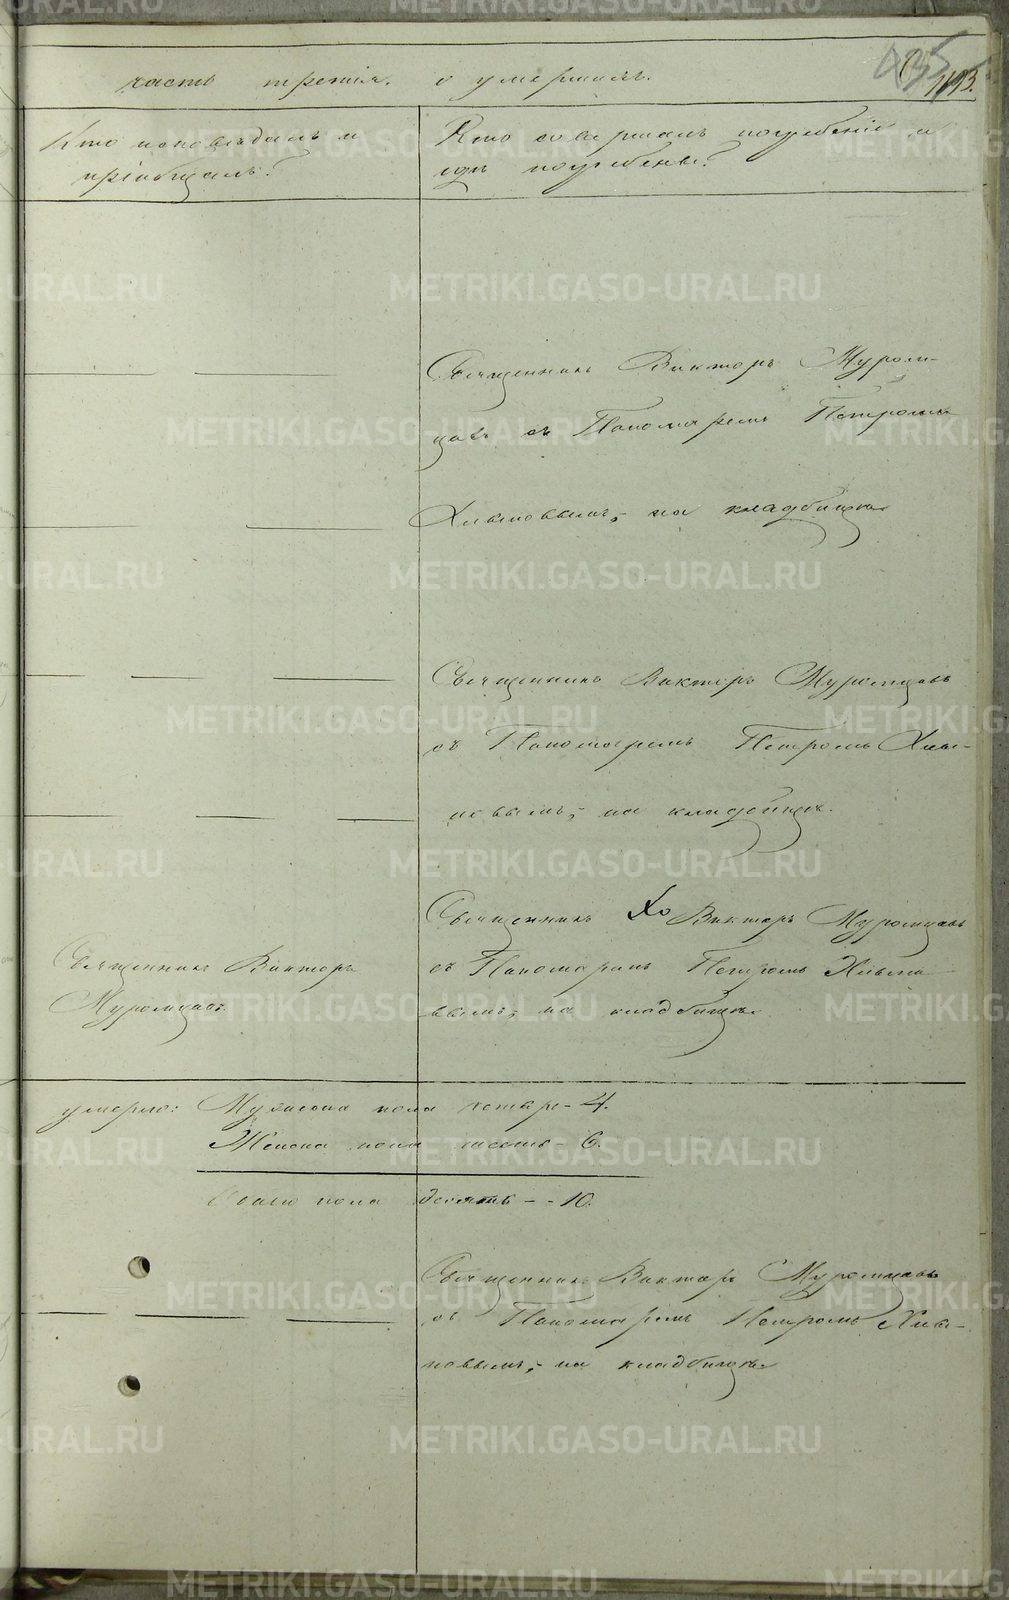 часть третія. о умершихъ.
1193.
Кто исповѣдалъ и
пріобщалъ?
Кто совершалъ погребеніе и
гдѣ погребены?
Священникъ Викторъ Муром-
цовъ съ Пономаремъ Петромъ
на кладбищѣ
Священникъ Викторъ Муромцовъ
съ Пономаремъ Петромъ
на кладбищѣ.
Священникъ Викторъ
Муромцовъ.
Священникъ Викторъ Муромцовъ
съ Пономаремъ Петромъ
на кладбищѣ
умерло: Мужеска пола четыре - 4.
Женска пола шесть - 6.
Обоего пола десять - - 10.
Священникъ Викторъ Муромцовъ
съ Пономаремъ Петромъ
на кладбищѣ
METRIKI.GASO-URAL.RU